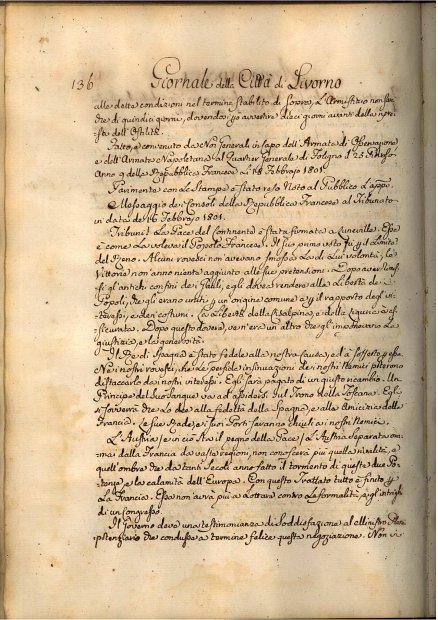 136 Giornale della Città di Livorno
alle dette condizioni nel termine stabilito di sopra, L'Armistizio non sarà
che di quindici giorni, dovendosi avvertire dieci giorni avanti della ripre-
sa dell'Ostilità.
Fatto, e convenuto da Noi Generali in Capo dell'Armata di Osservazione
e dell'Armata Napoletana al Quartier Generale di Foligno i 29 Piovoso
Anno 9 della Repubblica Francese li 18 Febbrajo 1801.
Parimente con le Stampe è stato reso Noto al Pubblico l'appo.
Messaggio dei Consoli della Repubblica Francese al Tribunato
in data de' 16 Febbrajo 1801.
Tribuni! La Pace del Continente è stata firmata a Luneville. Essa
è come La voleva il Popolo Francese. Il suo primo voto fu il Limite
del Reno. Alcuni rovesci non avevano smossa La di Lui volontà, le
Vittorie non hanno niente aggiunto alle sue pretensioni. Dopo aver
gli antichi confini dei Galli, egli doveva rendere alla Libertà de'
Popoli, che gli erano uniti un origine comune e il rapporto degl'in-
teressi, e dei costumi. La Libertà della Cisalpina, e della Liguria è as-
sicurata. Dopo questo dovere, ve n'era un altro che gl'imponevano la
giustizia, e la generosità.
Il Re di Spagna è stato fedele alla nostra causa, ed à sofferto essa
Nè i nostri rovesci, nè Le perfide insinuazioni dei nostri Nemici poterono
distaccarlo dai nostri interessi. Egli sarà pagato di un giusto ricambio. Un
Principe del suo Sangue va ad assidersi sul Trono della Toscana. Egli
si sovverrà che Lo deve alla fedeltà della Spagna, e alla Amicizia della
Francia. Le sue Rade, e i suoi Porti saranno chiusi ai nostri Nemici.
L'Austria, e in ciò sta il pegno della Pace, L'Austria separata or-
mai dalla Francia da vaste regioni, non conoscerà più quella rivalità, e
quell'ombre che da tanti Secoli anno fatto il tormento di queste due Po-
tenze, e la calamità dell'Europa. Con questo Trattato tutto è finito
La Francia. Essa non avrà più a Lottare contro Le formalità, e gl'intrighi
di un Congresso.
Il Governo deve una testimonianza di Soddisfazione al Ministro Pleni-
potenziario che condusse a termine felice questa negoziazione. Non vi